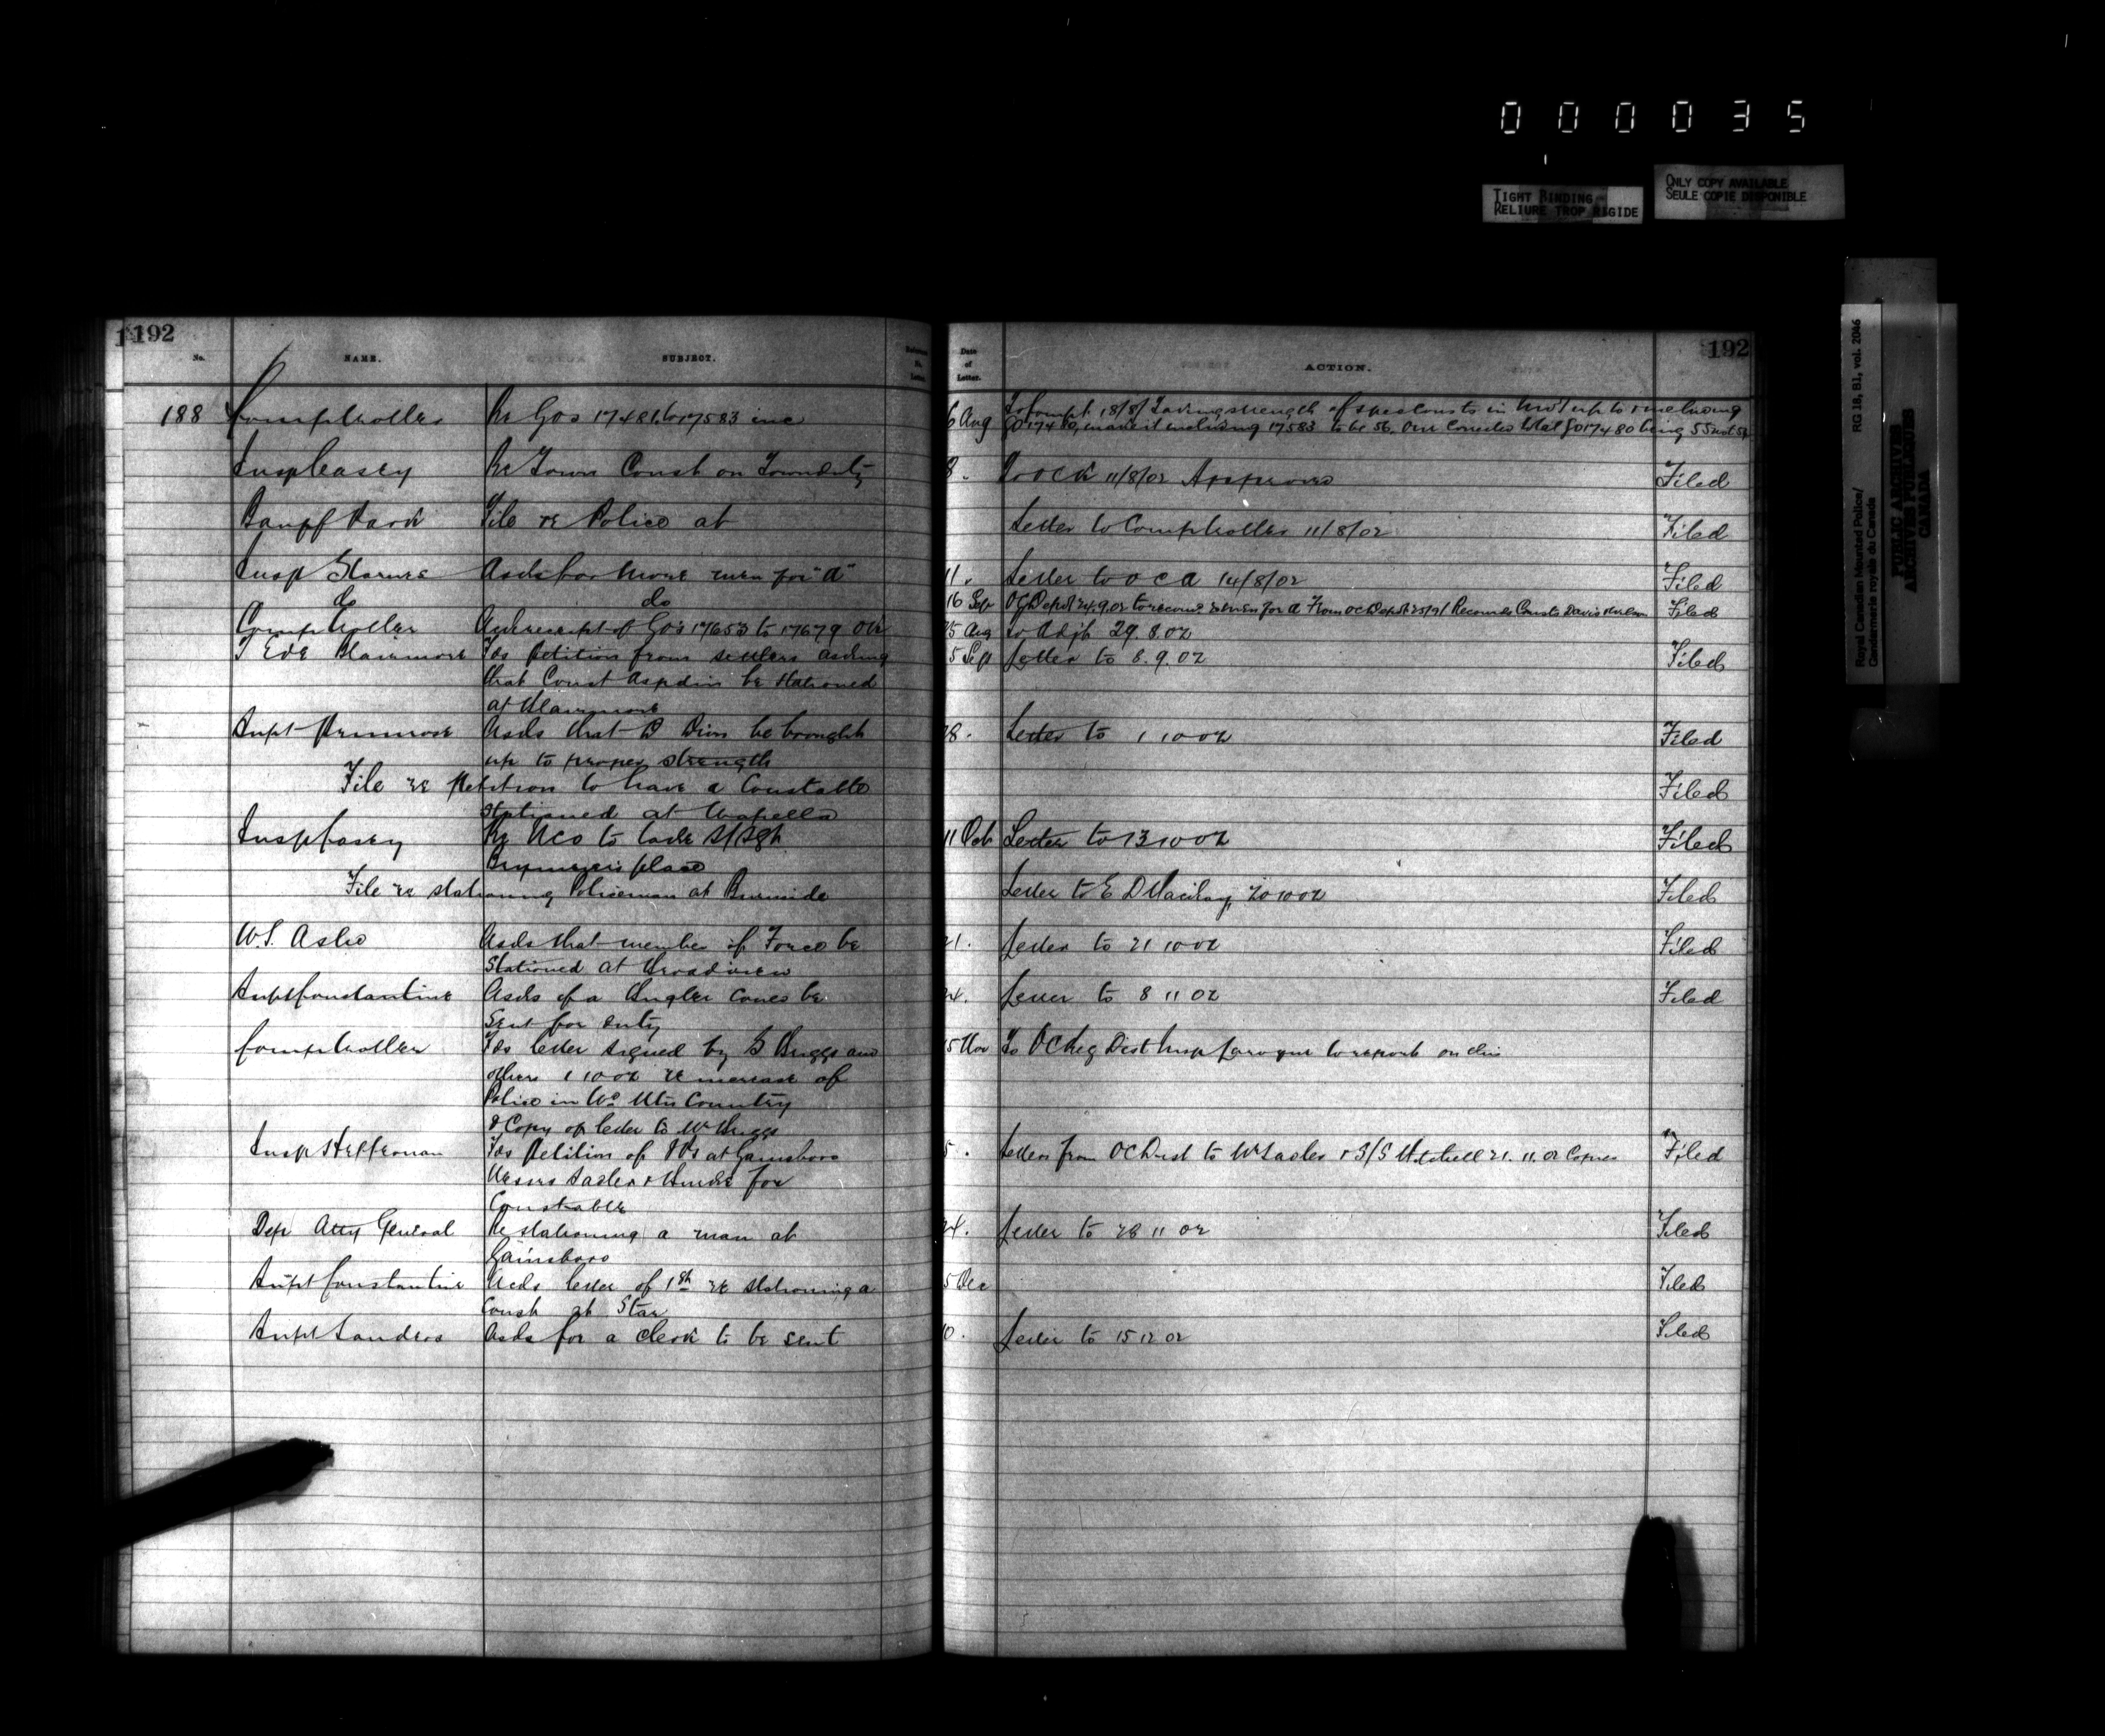 000035
TIGHT BINDING
RELIURE TROP RIGIDE
ONLY COPY AVAILABLE
SEULE COPIE DISPONIBLE
Royal Canadian Mounted Police/ RG 18, B1, vol. 2046
Gendarmerie royale du Canada
PUBLIC ARCHIVES
ARCHIVES PUBLIQUES
CANADA
192 192
No. NAME. SUBJECT. Date of Letter. ACTION.
188 Comptroller Re GOs 17481 to 17583 inc 6 Aug To Compt. 18/8/ strength of spec Consts in up to & including
17480, including 17583 to be 56. Our total GO 17480 being 55 not
Insp Casey Re Town Const on Town duty 8. O C K 11/8/02 Approved Filed
Banff Park File re Police at Letter to Comptroller 11/8/02 Filed
Insp Starnes Asks for more men for "A" 11. Letter to O C A 14/8/02 Filed
do do 16 Sep OC Depot 24.9.02 to men for A From OC Depot 25/9/ Recomds Consts Davis Filed
Comptroller receipt of GO's 17653 to 17679 25 Aug to Adjt 29.8.02
T Ede Blairmore Fds Petition from settlers asking 5 Sep Letter to 8.9.02 Filed
that Const Aspdin be stationed
at Blairmore
Supt Primrose Asks that D Divn be brought 28. Letter to 1 10 02 Filed
up to proper strength
File re Petition to have a Constable Filed
Stationed at Wapella
Insp Casey Re NCO to take S/Sgt 11 Oct Letter to 13 10 02 Filed
place
File re stationing Policeman at Burnside Letter to E D 20 10 02 Filed
W.S. Asks that member of Force be 21. Letter to 21 10 02 Filed
Stationed at Broadview
Supt Constantine Asks if a Bugler could be 24. Letter to 8 11 02 Filed
Sent for duty
Comptroller Fds letter signed by G Briggs and 15 Nov To OC Reg Dist Insp to report on this
others 1 10 02 re increase of
Police in Wd Mtn Country
& Copy of letter to Mr Briggs
Insp Heffernan Fds Petition of at Gainsboro 5. Letters from OC Dist to & S/S Mitchell 21.11.02 Copies Filed
Messrs & for
Constable
Dep Atty General Re stationing a man at 24. Letter to 28 11 02 Filed
Gainsboro
Supt Constantine letter of 1st re stationing a 5 Dec Filed
Const at Star
Supt Sanders Asks for a clerk to be sent 10. Letter to 15 12 02 Filed